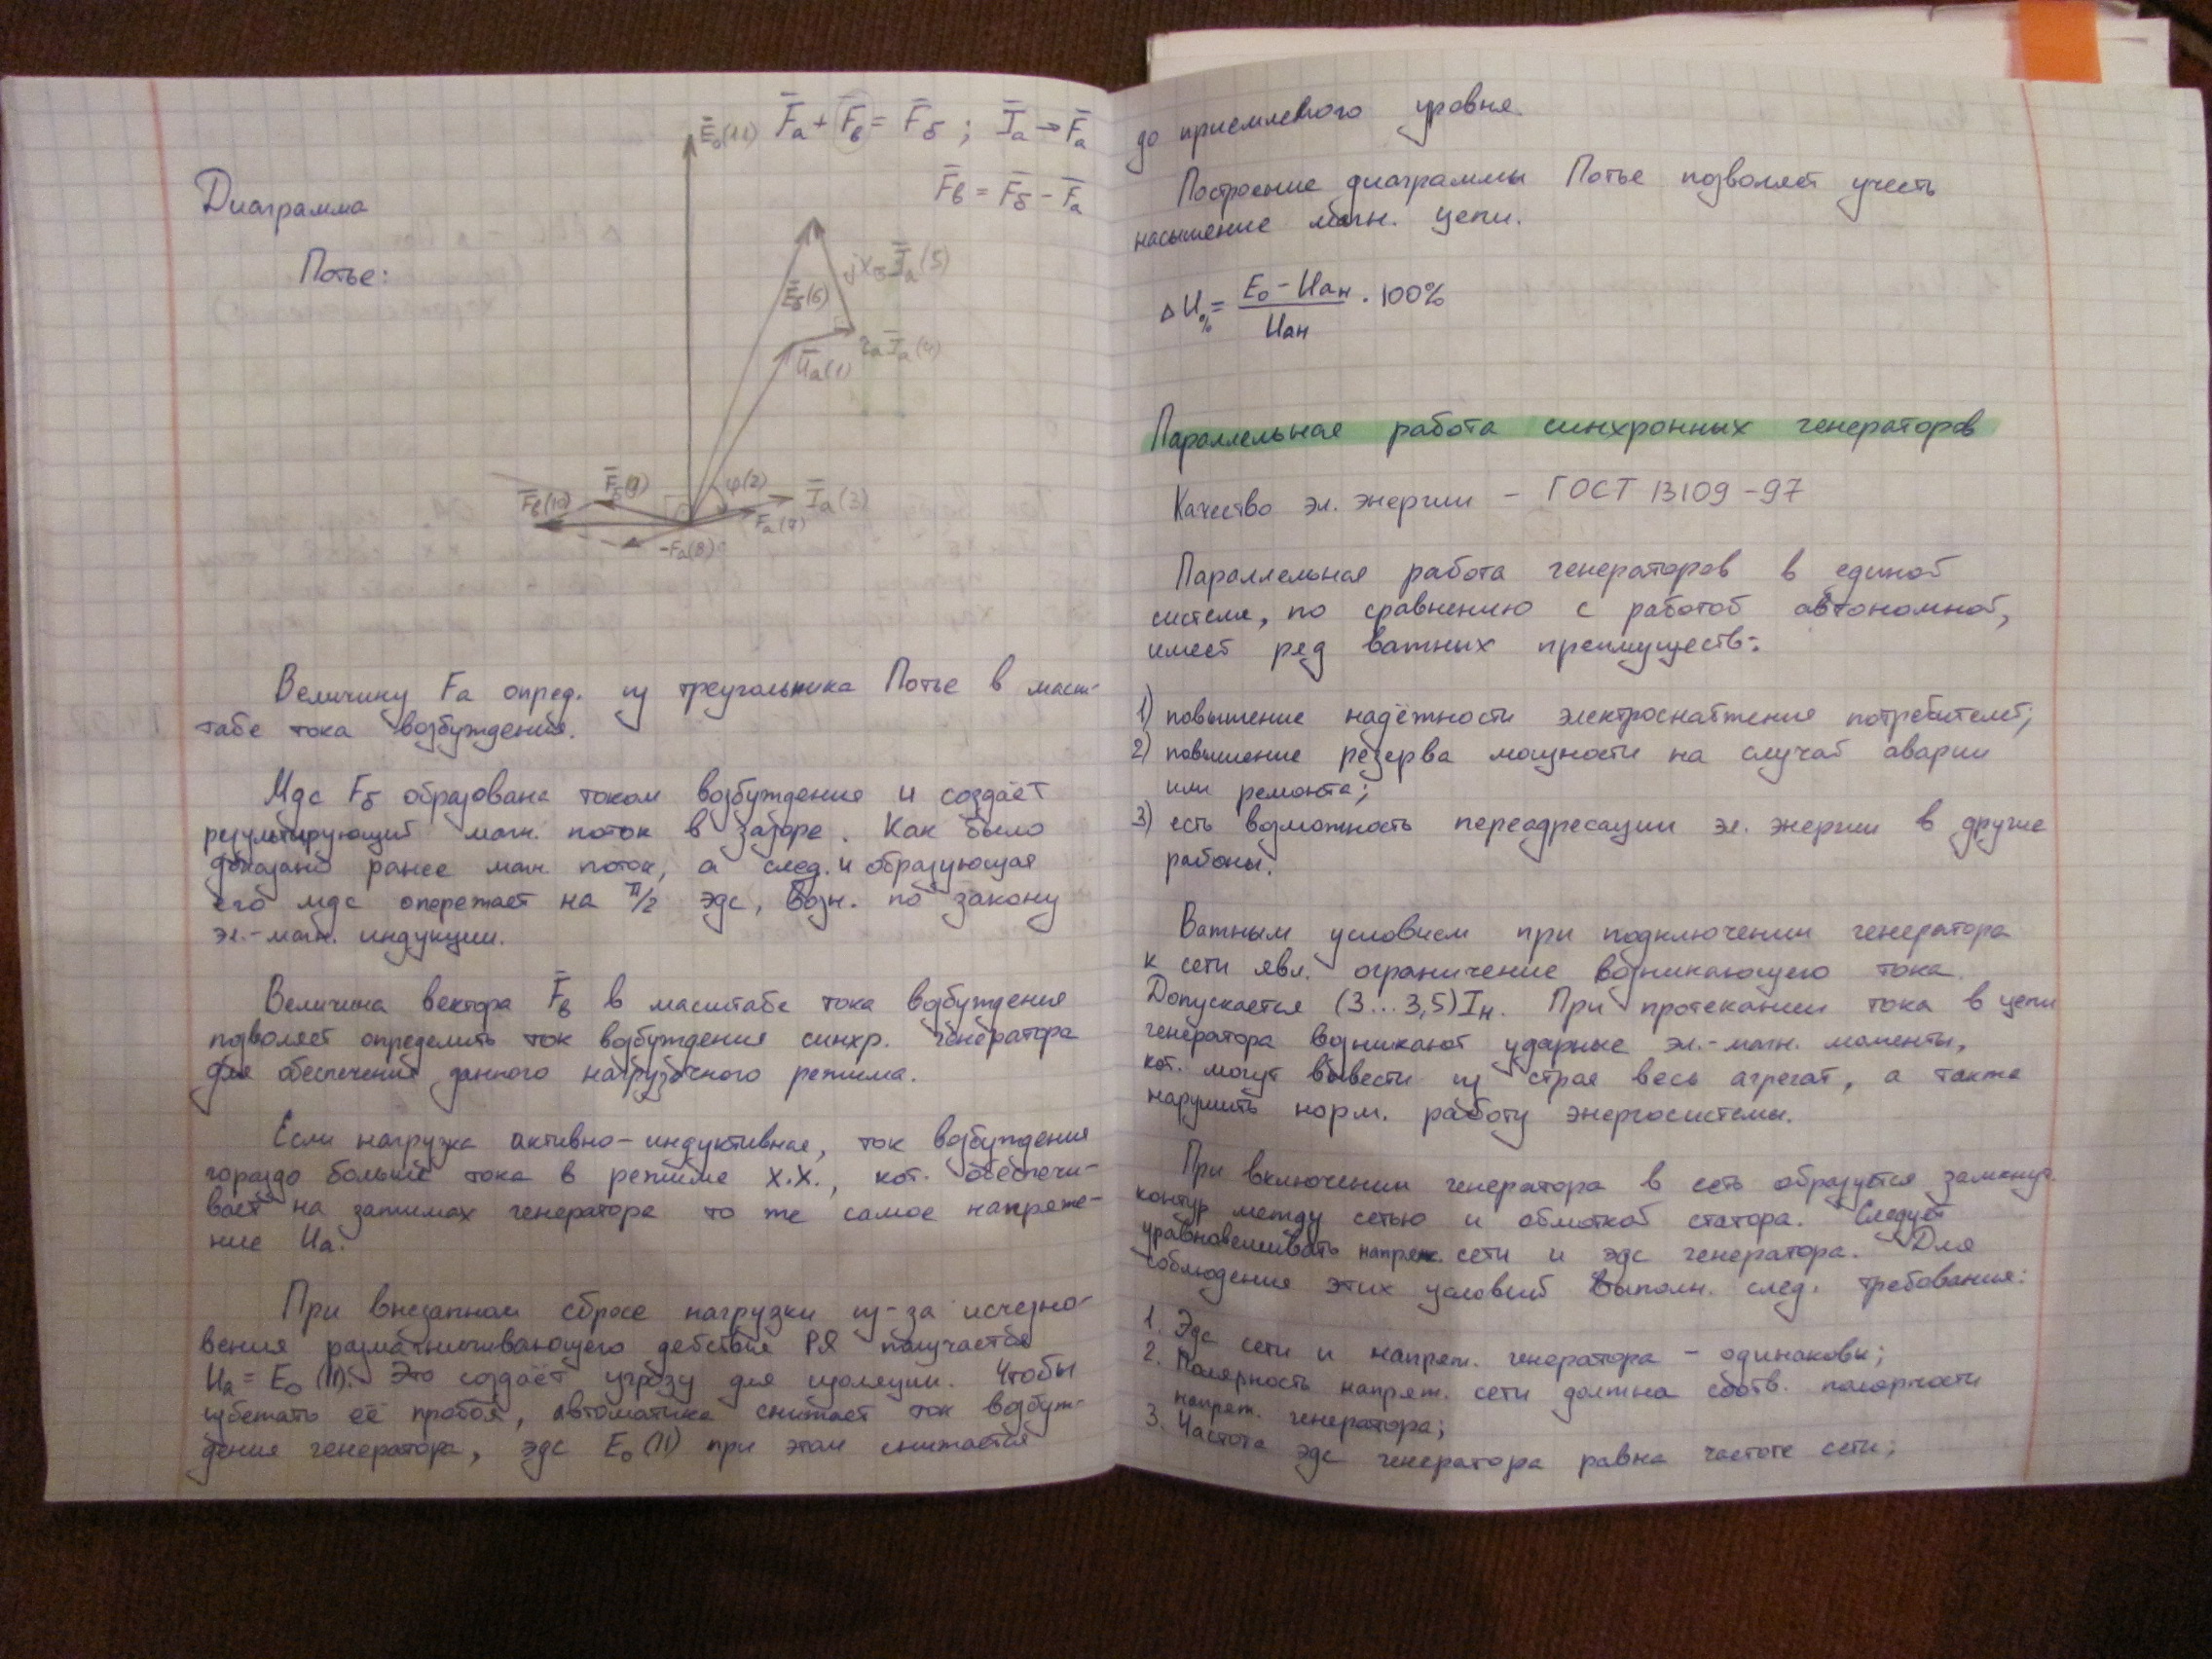 Диаграмма
Потье:
F̄a + F̄в = F̄δ ; Īa → F̄a
F̄в = F̄δ - F̄a
Ē₀(11)
jxσĪa(5)
Ēδ(6)
raĪa(4)
Ūa(1)
φ(2)
Īa(3)
Fa(7)
-Fa(8)
F̄δ(9)
F̄в(10)
Величину Fa опред. из треугольника Потье в масш-
табе тока возбуждения.
Мдс Fδ образована током возбуждения и создаёт
результирующий магн. поток в зазоре. Как было
доказано ранее магн. поток, а след. и образующая
его мдс опережает на π/2 эдс, возн. по закону
эл.-магн. индукции.
Величина вектора F̄в в масштабе тока возбуждения
позволяет определить ток возбуждения синхр. генератора
для обеспечения данного нагрузочного режима.
Если нагрузка активно-индуктивная, ток возбуждения
гораздо больше тока в режиме х.х., кот. обеспечи-
вает на зажимах генератора то же самое напряже-
ние Ua.
При внезапном сбросе нагрузки из-за исчезно-
вения размагничивающего действия РЯ получается
Ua = E₀(11). Это создаёт угрозу для изоляции. Чтобы
избежать её пробоя, автоматика снижает ток возбуж-
дения генератора, эдс E₀(11) при этом снижается
до приемлемого уровня.
Построение диаграммы Потье позволяет учесть
насыщение магн. цепи.
ΔU% = (E₀ - Uан)/Uан · 100%
Параллельная работа синхронных генераторов
Качество эл. энергии - ГОСТ 13109-97
Параллельная работа генераторов в единой
системе, по сравнению с работой автономной,
имеет ряд важных преимуществ:
1) повышение надёжности электроснабжения потребителей;
2) повышение резерва мощности на случай аварии
или ремонта;
3) есть возможность переадресации эл. энергии в другие
районы.
Важным условием при подключении генератора
к сети явл. ограничение возникающего тока.
Допускается (3...3,5)Iн. При протекании тока в цепи
генератора возникают ударные эл.-магн. моменты,
кот. могут вывести из строя весь агрегат, а также
нарушить норм. работу энергосистемы.
При включении генератора в сеть образуется замкнут.
контур между сетью и обмоткой статора. Следует
уравновешивать напряж. сети и эдс генератора. Для
соблюдения этих условий выполн. след. требования:
1. Эдс сети и напряж. генератора - одинаковы;
2. Полярность напряж. сети должна соотв. полярности
напряж. генератора;
3. Частота эдс генератора равна частоте сети;